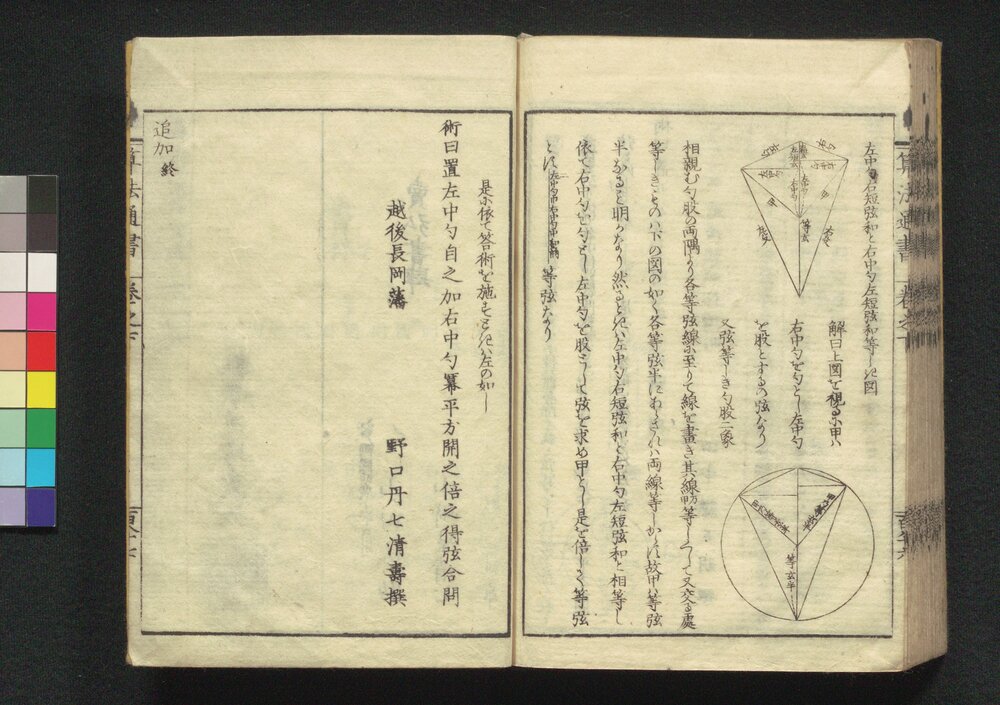 左中勾右短弦和と右中勾左短弦和等しき図
解曰上図を視るに甲ハ
右中勾を勾とし左中勾
を股とするの弦なり
又弦等しき勾股二象
等玄
等玄半
相親む勾股の両隅より各等弦線に至りて線を畫き其線等しくして又交る處
等しきものハ下の図の如く各等弦半にあらされハ両線等しからす故甲ハ等弦
半なること明かなり然るときハ左中勾右短弦和と右中勾左短弦和と相等し
依て右中勾を勾とし左中勾を股として弦を求め甲とし是を倍して等弦
とす
等弦なり
算法通書
巻之下
是に依て答術を施すときハ左の如し
術曰置左中勾自之加右中勾冪平方開之倍之得弦合問
越後長岡藩
野口丹七清壽撰
追加終
算法通書
巻之下